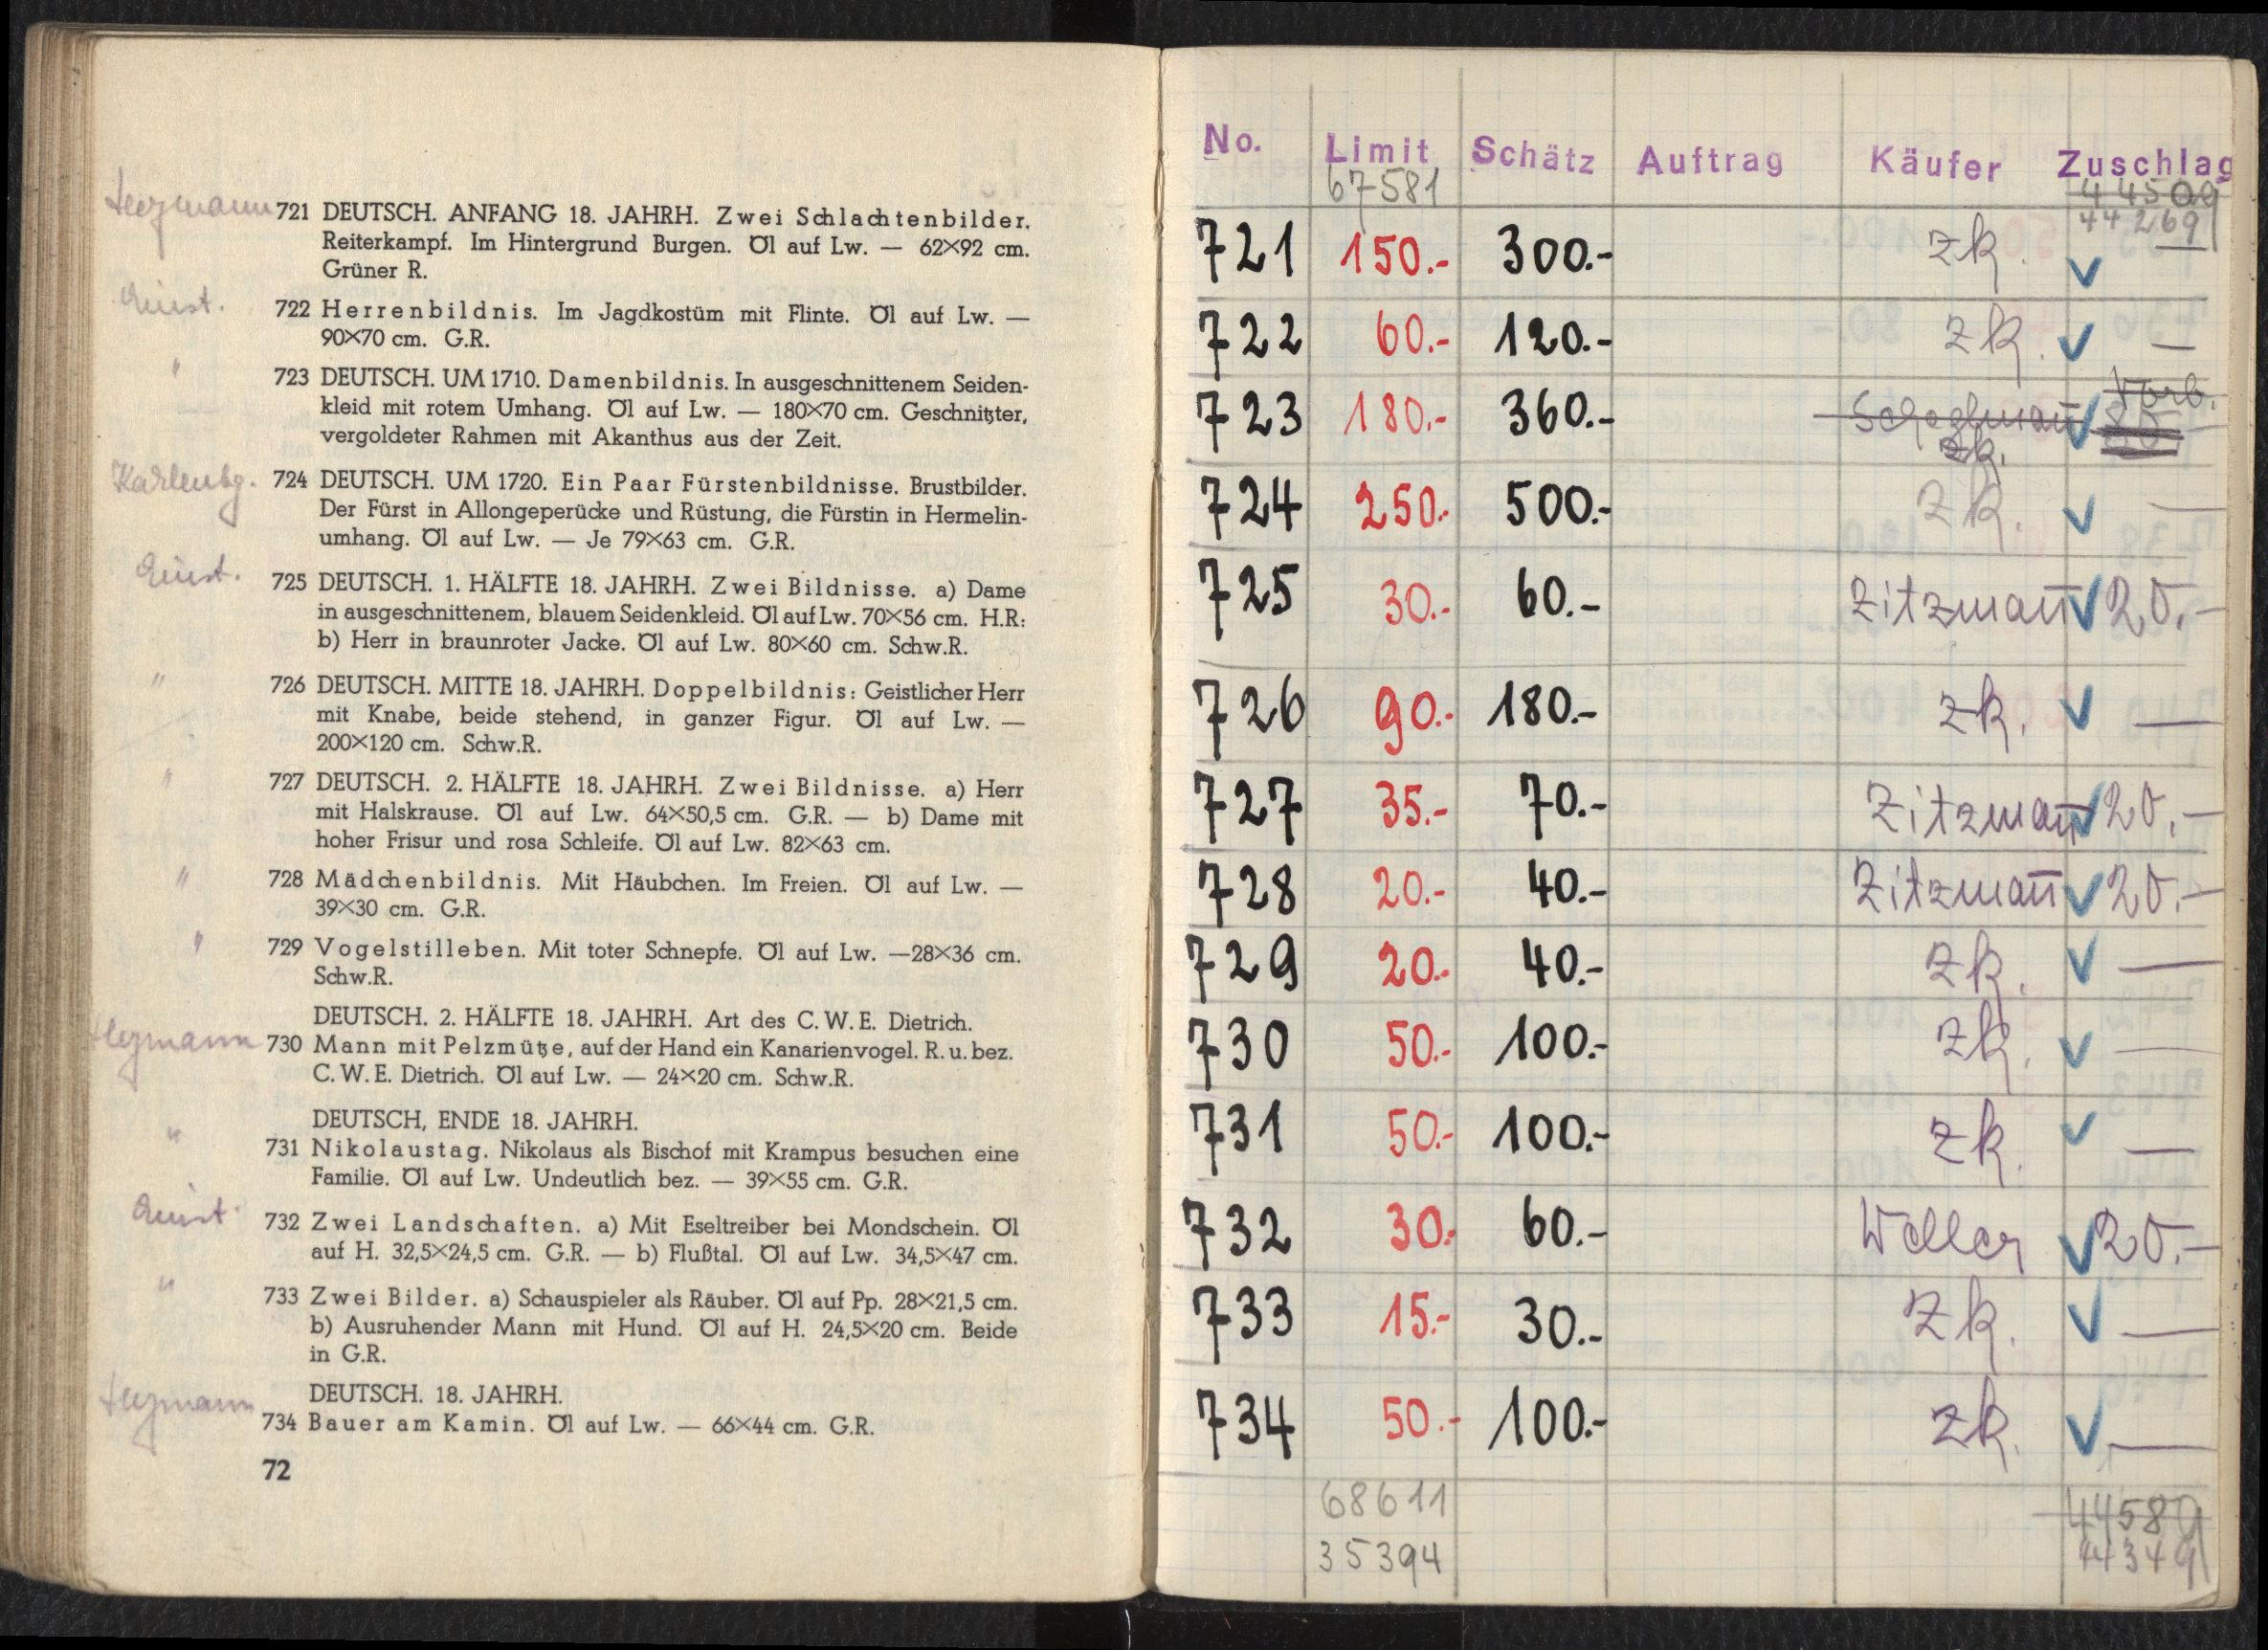 721 DEUTSCH. ANFANG 18. JAHRH. Zwei Schlachtenbilder.
Reiterkampf. Im Hintergrund Burgen. Öl auf Lw. — 62×92 cm.
Grüner R.
722 Herrenbildnis. Im Jagdkostüm mit Flinte. Öl auf Lw. —
90×70 cm. G.R.
" 723 DEUTSCH. UM 1710. Damenbildnis. In ausgeschnittenem Seiden-
kleid mit rotem Umhang. Öl auf Lw. — 180×70 cm. Geschnitzter,
vergoldeter Rahmen mit Akanthus aus der Zeit.
724 DEUTSCH. UM 1720. Ein Paar Fürstenbildnisse. Brustbilder.
Der Fürst in Allongeperücke und Rüstung, die Fürstin in Hermelin-
umhang. Öl auf Lw. — Je 79×63 cm. G.R.
725 DEUTSCH. 1. HÄLFTE 18. JAHRH. Zwei Bildnisse. a) Dame
in ausgeschnittenem, blauem Seidenkleid. Öl auf Lw. 70×56 cm. H.R:
b) Herr in braunroter Jacke. Öl auf Lw. 80×60 cm. Schw.R.
" 726 DEUTSCH. MITTE 18. JAHRH. Doppelbildnis: Geistlicher Herr
mit Knabe, beide stehend, in ganzer Figur. Öl auf Lw. —
200×120 cm. Schw.R.
" 727 DEUTSCH. 2. HÄLFTE 18. JAHRH. Zwei Bildnisse. a) Herr
mit Halskrause. Öl auf Lw. 64×50,5 cm. G.R. — b) Dame mit
hoher Frisur und rosa Schleife. Öl auf Lw. 82×63 cm.
" 728 Mädchenbildnis. Mit Häubchen. Im Freien. Öl auf Lw. —
39×30 cm. G.R.
" 729 Vogelstilleben. Mit toter Schnepfe. Öl auf Lw. —28×36 cm.
Schw.R.
DEUTSCH. 2. HÄLFTE 18. JAHRH. Art des C.W.E. Dietrich.
730 Mann mit Pelzmütze, auf der Hand ein Kanarienvogel. R. u. bez.
C.W.E. Dietrich. Öl auf Lw. — 24×20 cm. Schw.R.
DEUTSCH, ENDE 18. JAHRH.
" 731 Nikolaustag. Nikolaus als Bischof mit Krampus besuchen eine
Familie. Öl auf Lw. Undeutlich bez. — 39×55 cm. G.R.
732 Zwei Landschaften. a) Mit Eseltreiber bei Mondschein. Öl
auf H. 32,5×24,5 cm. G.R. — b) Flußtal. Öl auf Lw. 34,5×47 cm.
" 733 Zwei Bilder. a) Schauspieler als Räuber. Öl auf Pp. 28×21,5 cm.
b) Ausruhender Mann mit Hund. Öl auf H. 24,5×20 cm. Beide
in G.R.
DEUTSCH. 18. JAHRH.
734 Bauer am Kamin. Öl auf Lw. — 66×44 cm. G.R.
72
No. Limit Schätz Auftrag Käufer Zuschlag
67581 44509
44269
721 150.- 300.- zk. ✓ —
722 60.- 120.- zk. ✓ —
723 180.- 360.- ✓ zk.
724 250.- 500.- zk. ✓ —
725 30.- 60.- Zitzmann̄ ✓ 20.-
726 90.- 180.- zk. ✓ —
727 35.- 70.- Zitzmann̄ ✓ 20.-
728 20.- 40.- Zitzmann̄ ✓ 20.-
729 20.- 40.- zk. ✓ —
730 50.- 100.- zk. ✓ —
731 50.- 100.- zk. ✓ —
732 30.- 60.- Weller ✓ 20.-
733 15.- 30.- zk. ✓ —
734 50.- 100.- zk. ✓ —
68611 44589
35394 44349